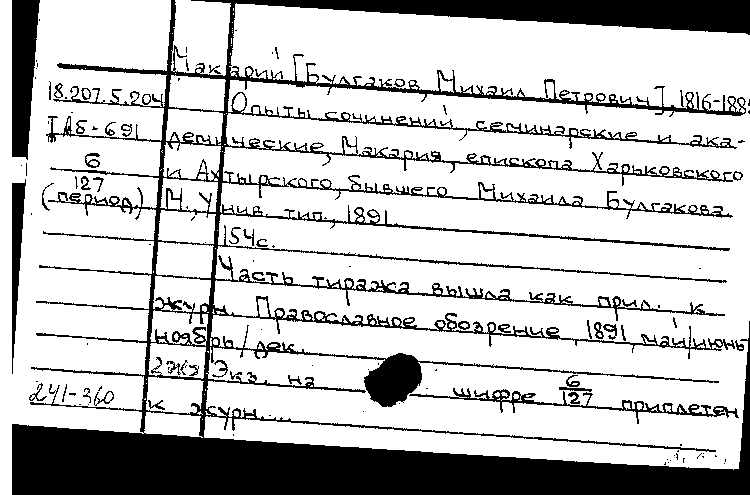 Макарий [Булгаков, Михаил Петрович], 1816-188
18.207.5.204 Опыты сочинений, семинарские и ака-
I Аб-691 демические, Макария, епископа Харьковского
6/127 и Ахтырского, бывшего Михаила Булгакова.
(период.) М., Унив. тип., 1891.
154с.
Часть тиража вышла как прил. к
журн. Православное обозрение, 1891, май/июнь
ноябрь/дек.
2экз Экз. на шифре 6/127 приплетен
241-360 к журн....